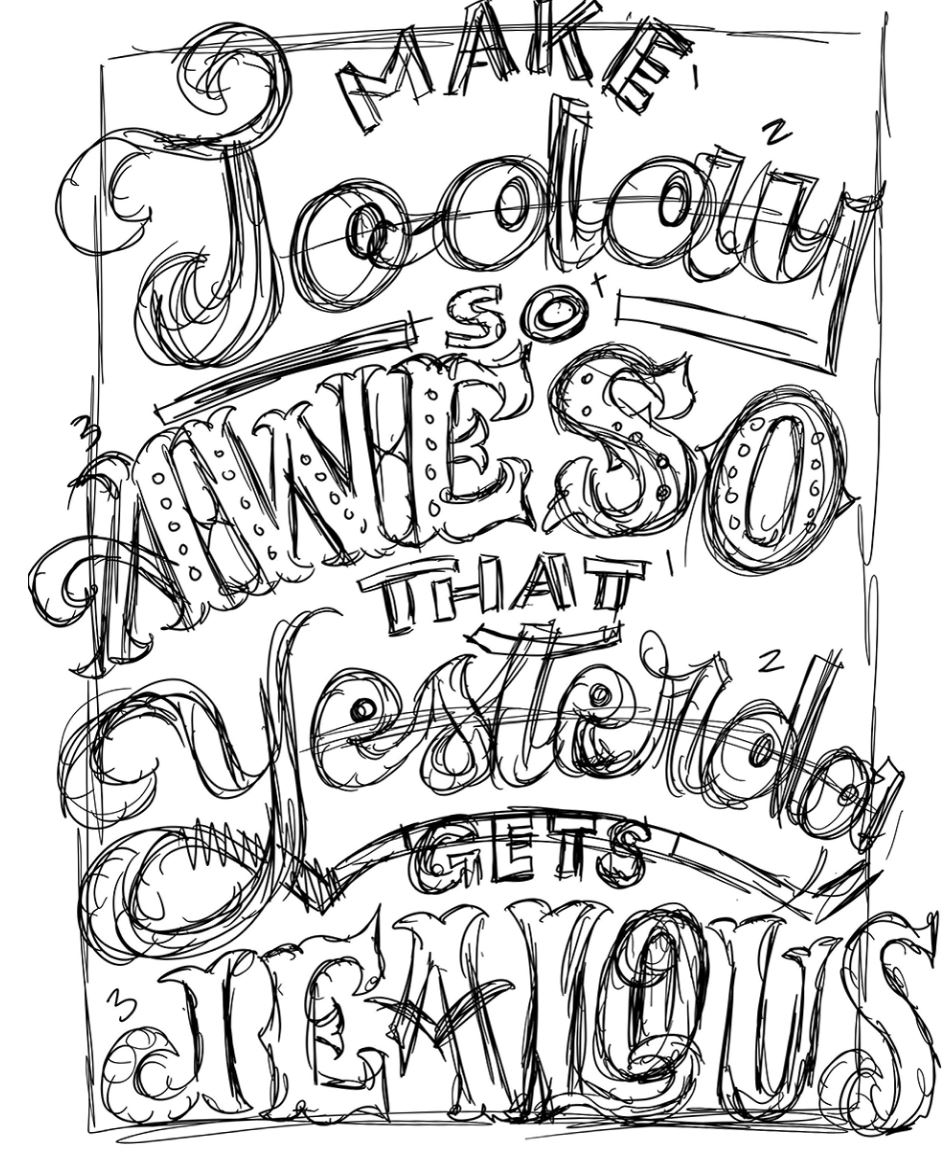 MAKE 1
Today 2
SO 1
3 AWESO
THAT 1
Yesterday 2
GETS
3 JEALOUS